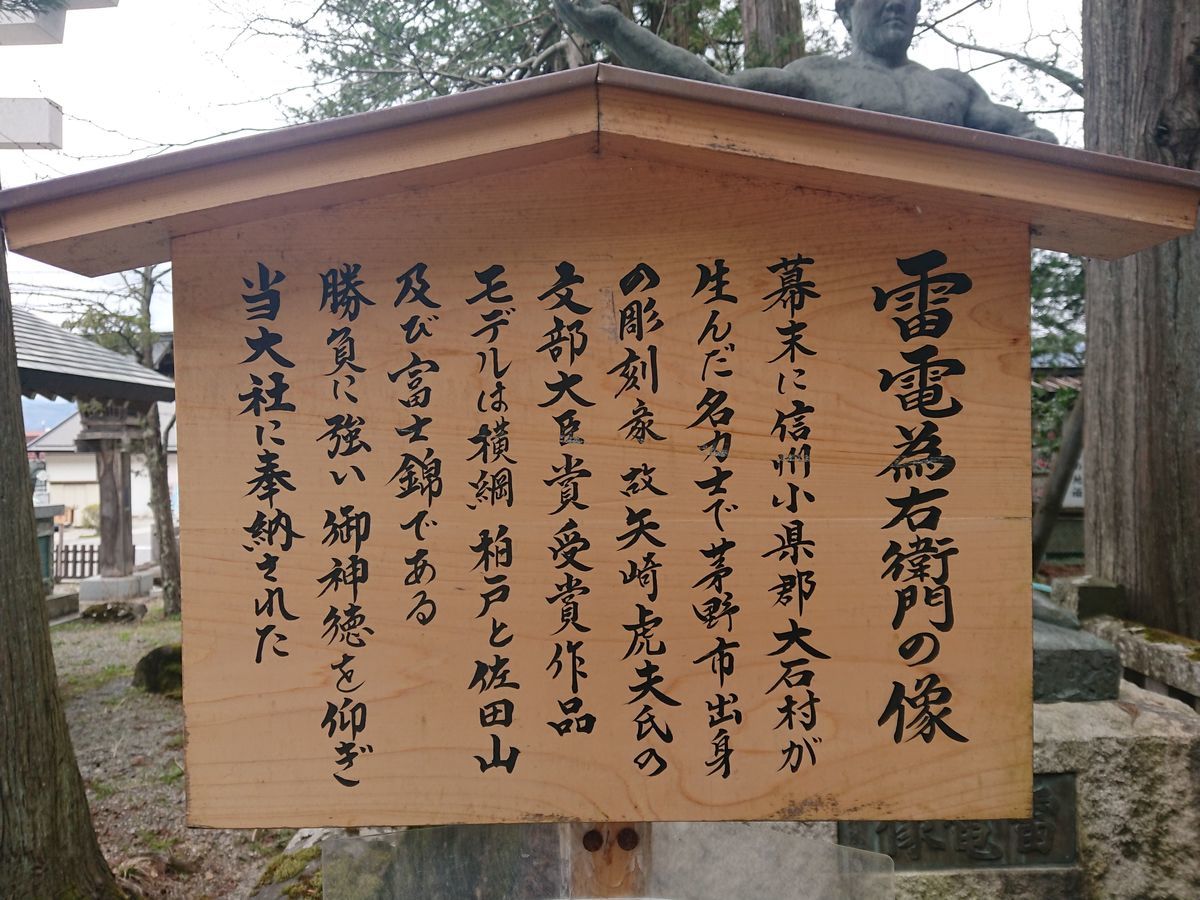 雷電為右衛門の像
幕末に信州小県郡大石村が
生んだ名力士で茅野市出身
の彫刻家 故矢崎虎夫氏の
文部大臣賞受賞作品
モデルは横綱 柏戸と佐田山
及び富士錦である
勝負に強い御神徳を仰ぎ
当大社に奉納された
雷電像